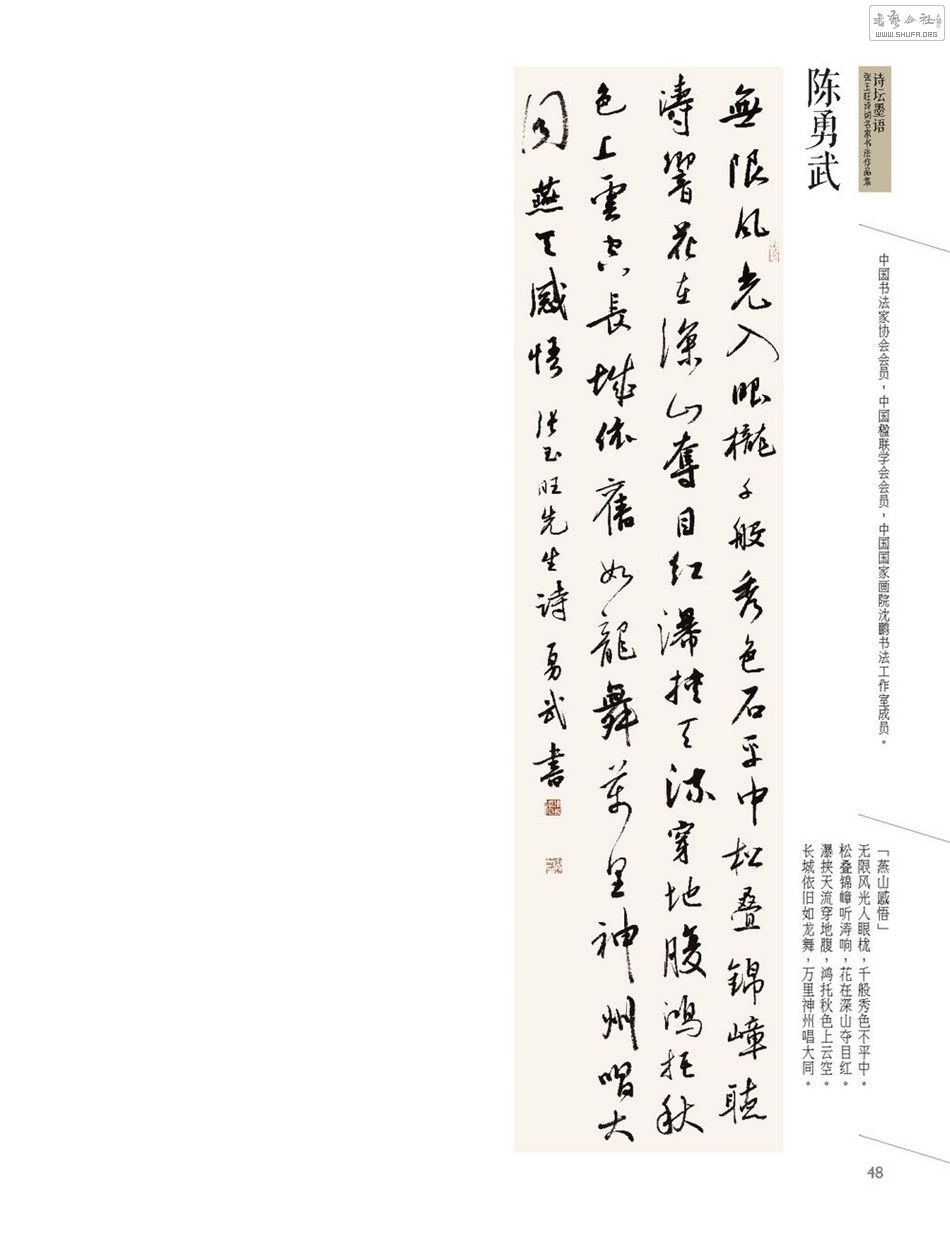 書藝公社
WWW.SHUFA.ORG
诗坛墨语
张玉旺诗词名家书法作品集
陈勇武
中国书法家协会会员，中国楹联学会会员，中国国家画院沈鹏书法工作室成员。
「燕山感悟」
无限风光入眼栊，千般秀色不平中。
松叠锦嶂听涛响，花在深山夺目红。
瀑挟天流穿地腹，鸿托秋色上云空。
长城依旧如龙舞，万里神州唱大同。
無限風光入眼櫳千般秀色不平中松叠錦嶂聽
濤響花在深山奪目红瀑挟天流穿地腹鴻托秋
色上雲空長城依舊如龍舞萬里神州唱大
同 燕山感悟 张玉旺先生诗 勇武書
48